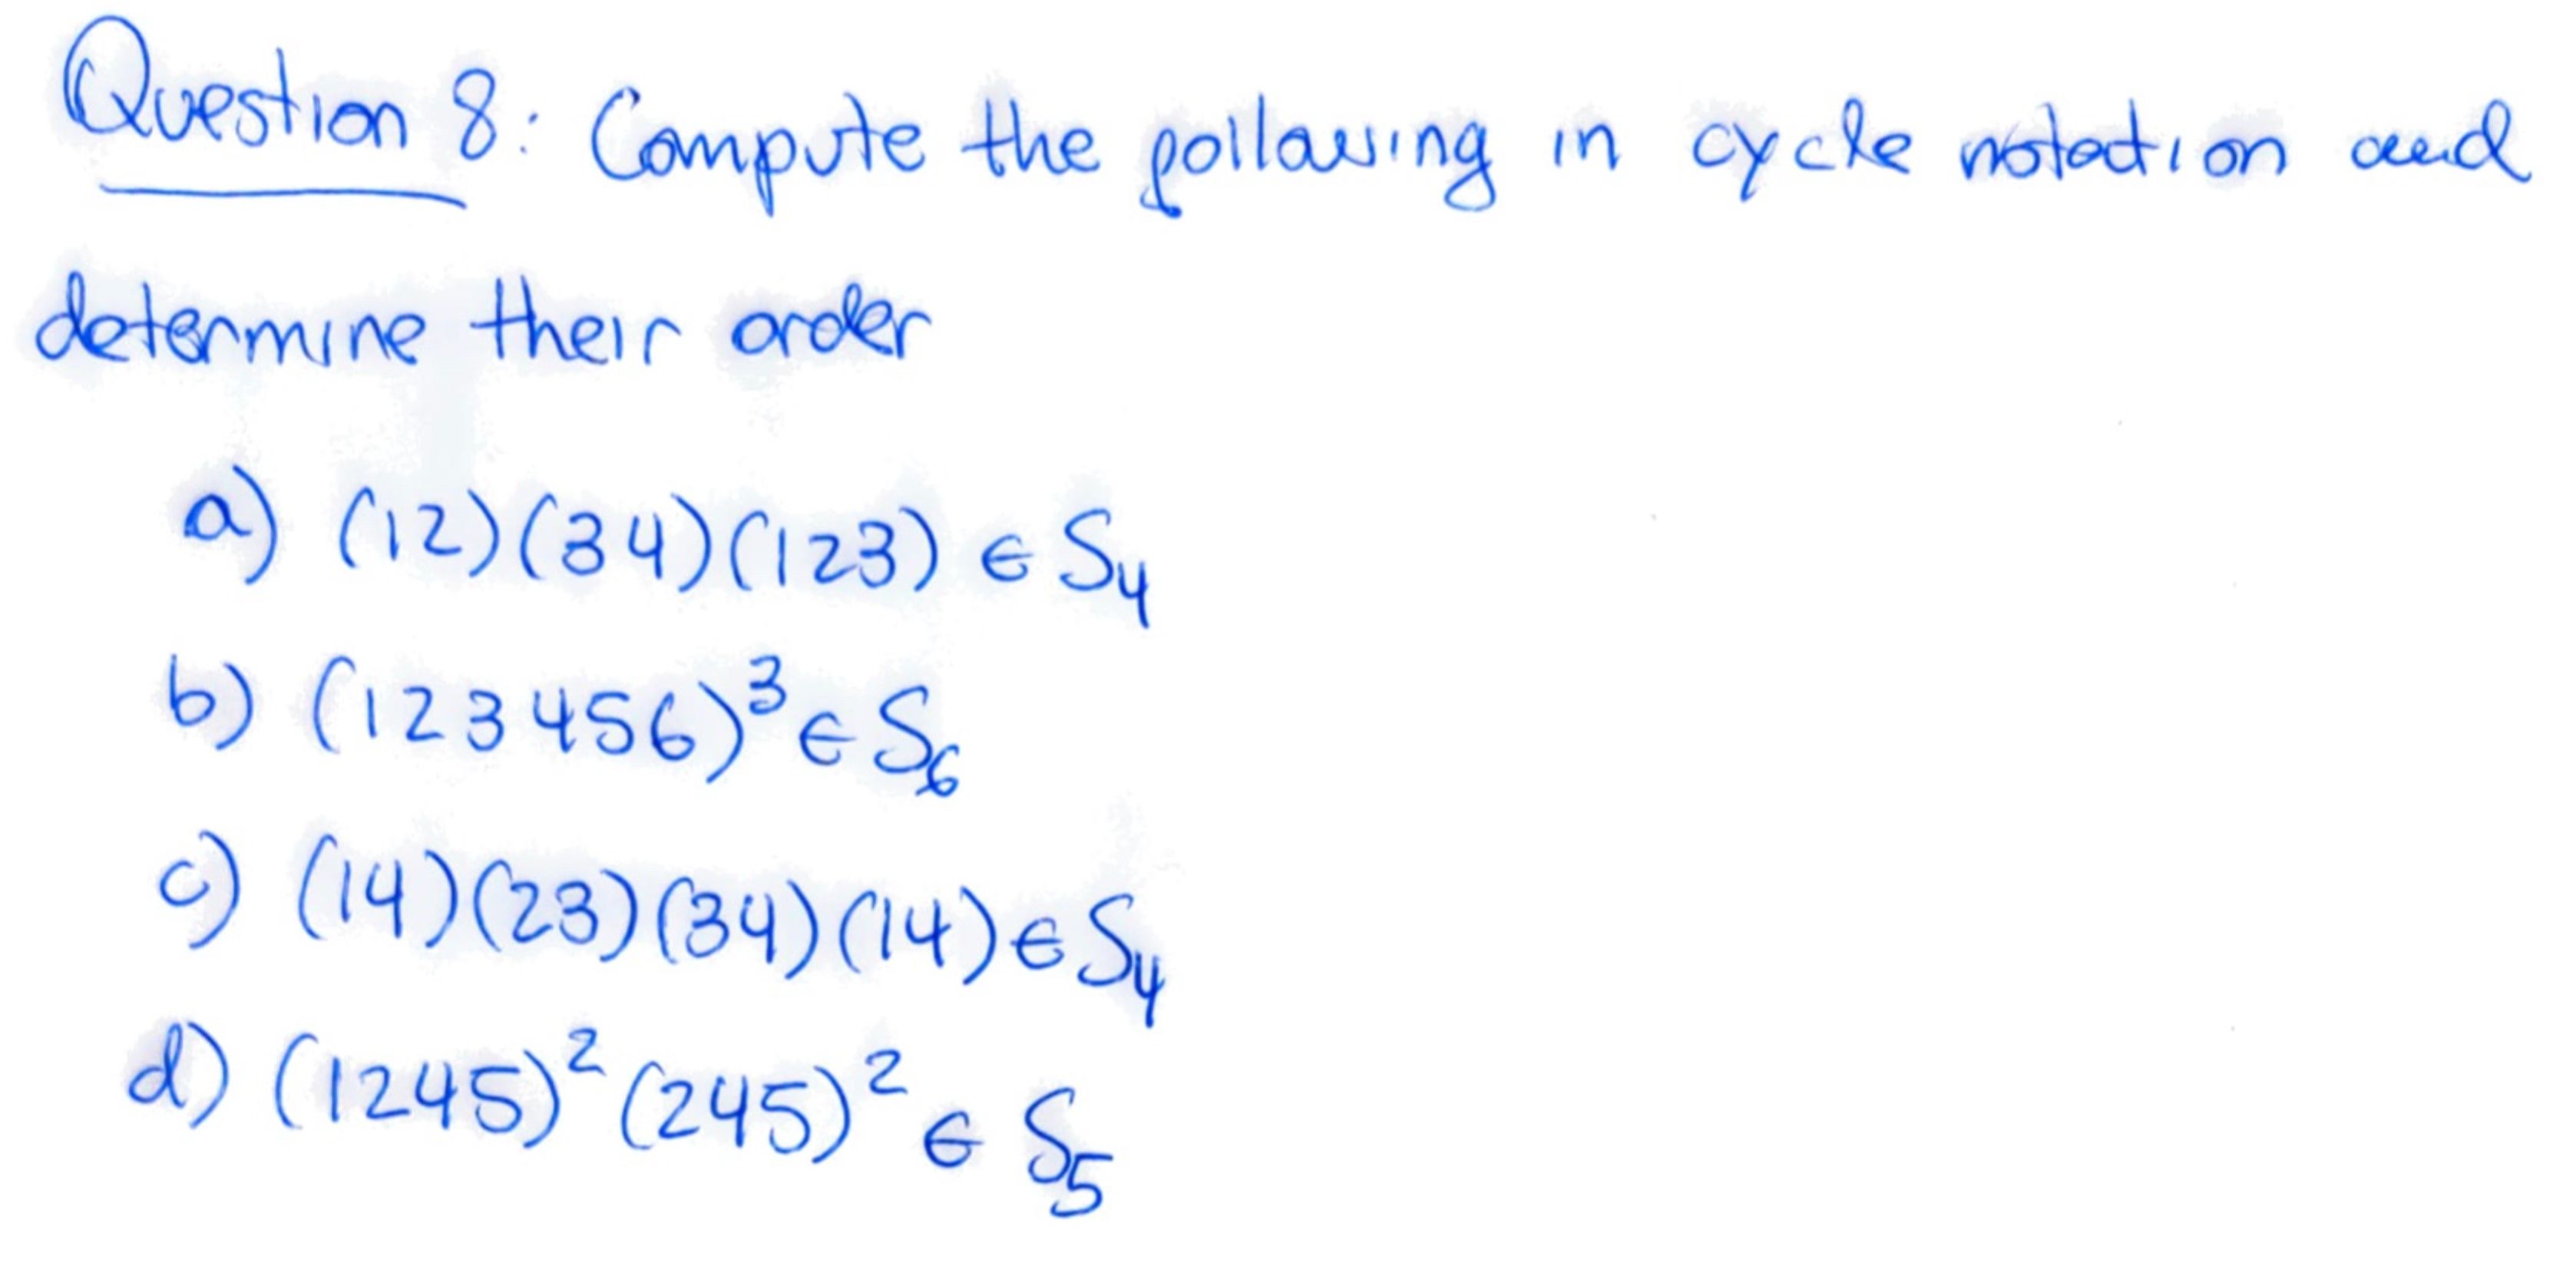 Question 8: Compute the following in cycle notation and
determine their order
a) (12)(34)(123) ∈ S₄
b) (123456)³ ∈ S₆
c) (14)(23)(34)(14) ∈ S₄
d) (1245)² (245)² ∈ S₅